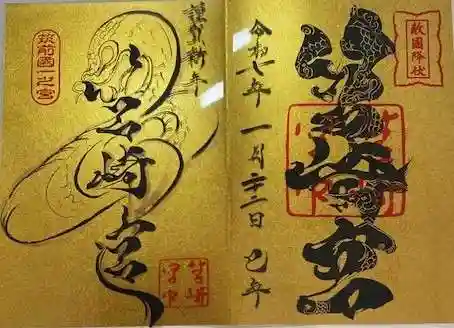 敵國降伏
筥崎宮
令和七年 一月二十二日 巳年
謹賀新年
筥崎宮
筑前國一之宮